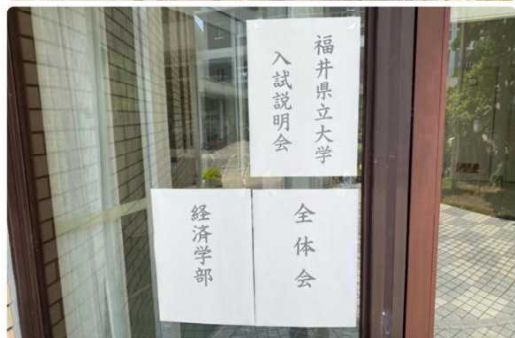 福井県立大学
入試説明会
全体会
経済学部